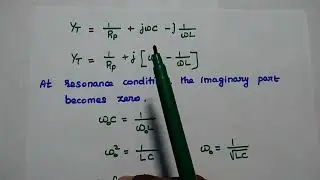 Y_T = 1/R_p + jωC - j 1/ωL
Y_T = 1/R_p + j[ω - 1/ωL]
At Resonance condition the imaginary part
becomes zero.
ω₀C = 1/ω₀L
ω₀² = 1/LC ω₀ = 1/√LC